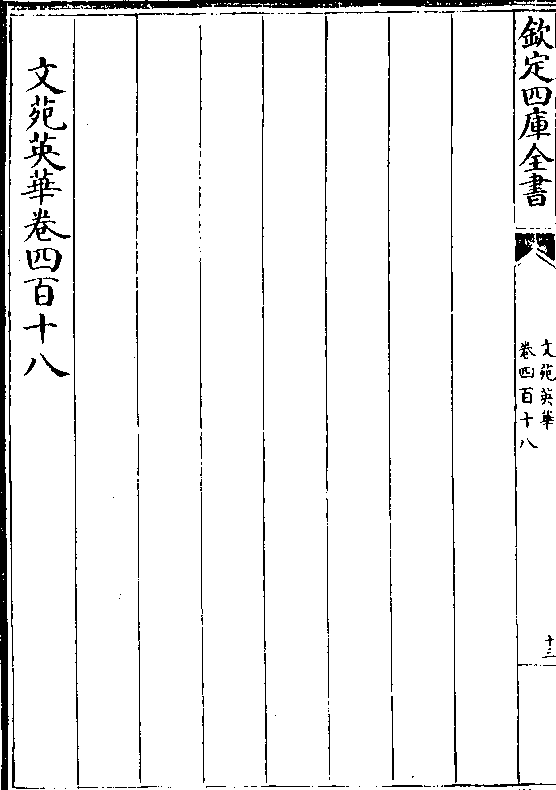 欽定四庫全書
文苑英華
卷四百十八
十三
文苑英華卷四百十八